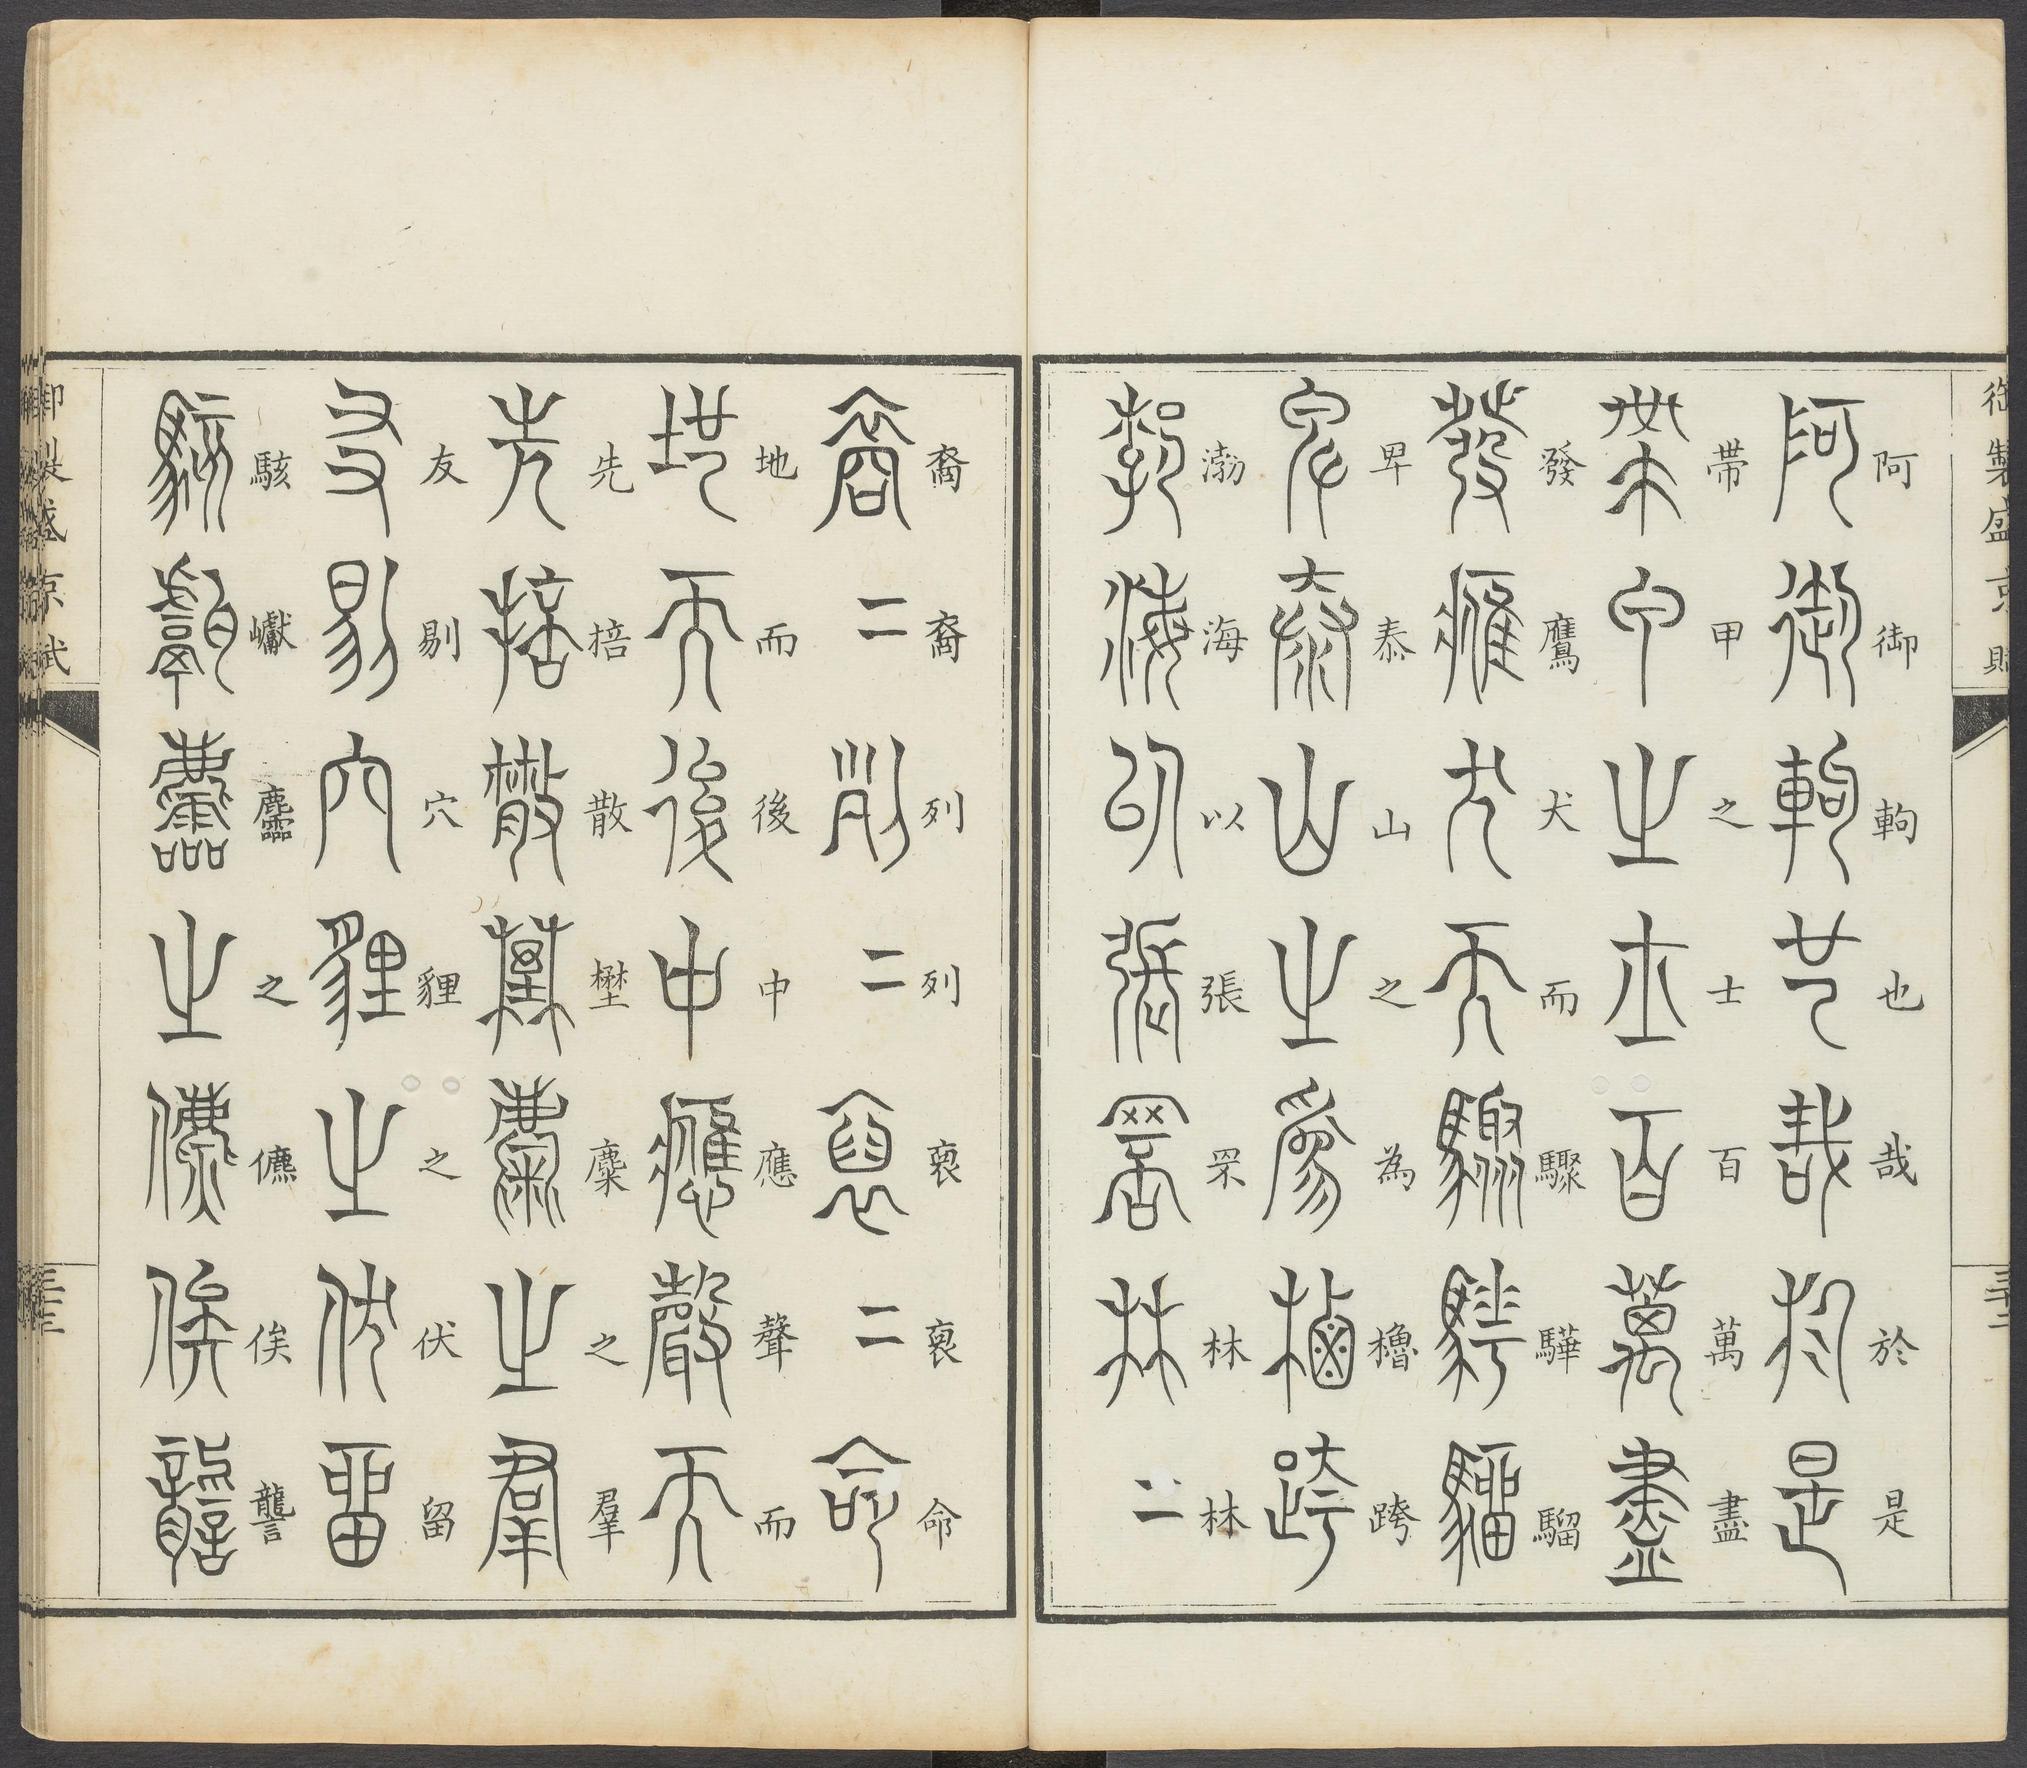 御製盛京賦
三十二
阿御軥也哉於是
帶甲之士百萬盡
發鷹犬而驟驊騮
卑泰山之為櫓跨
渤海以張罘林林
裔裔列列裒裒命
地而後中應聲而
先掊散埜麋之羣
友剔穴貍之伏留
駭巘麢之儦俟讋
御製盛京賦